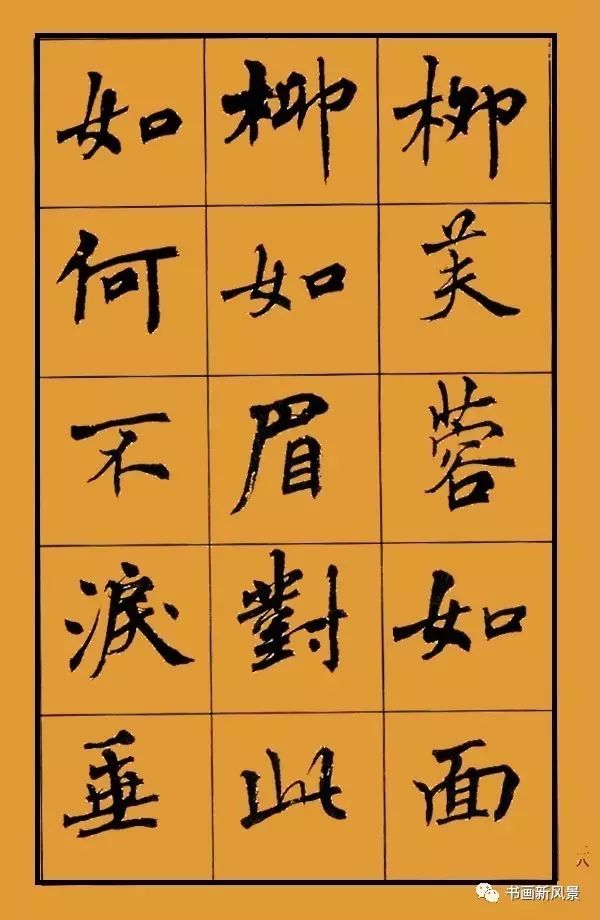 柳芙蓉如面
柳如眉對此
如何不淚垂
一八
书画新风景